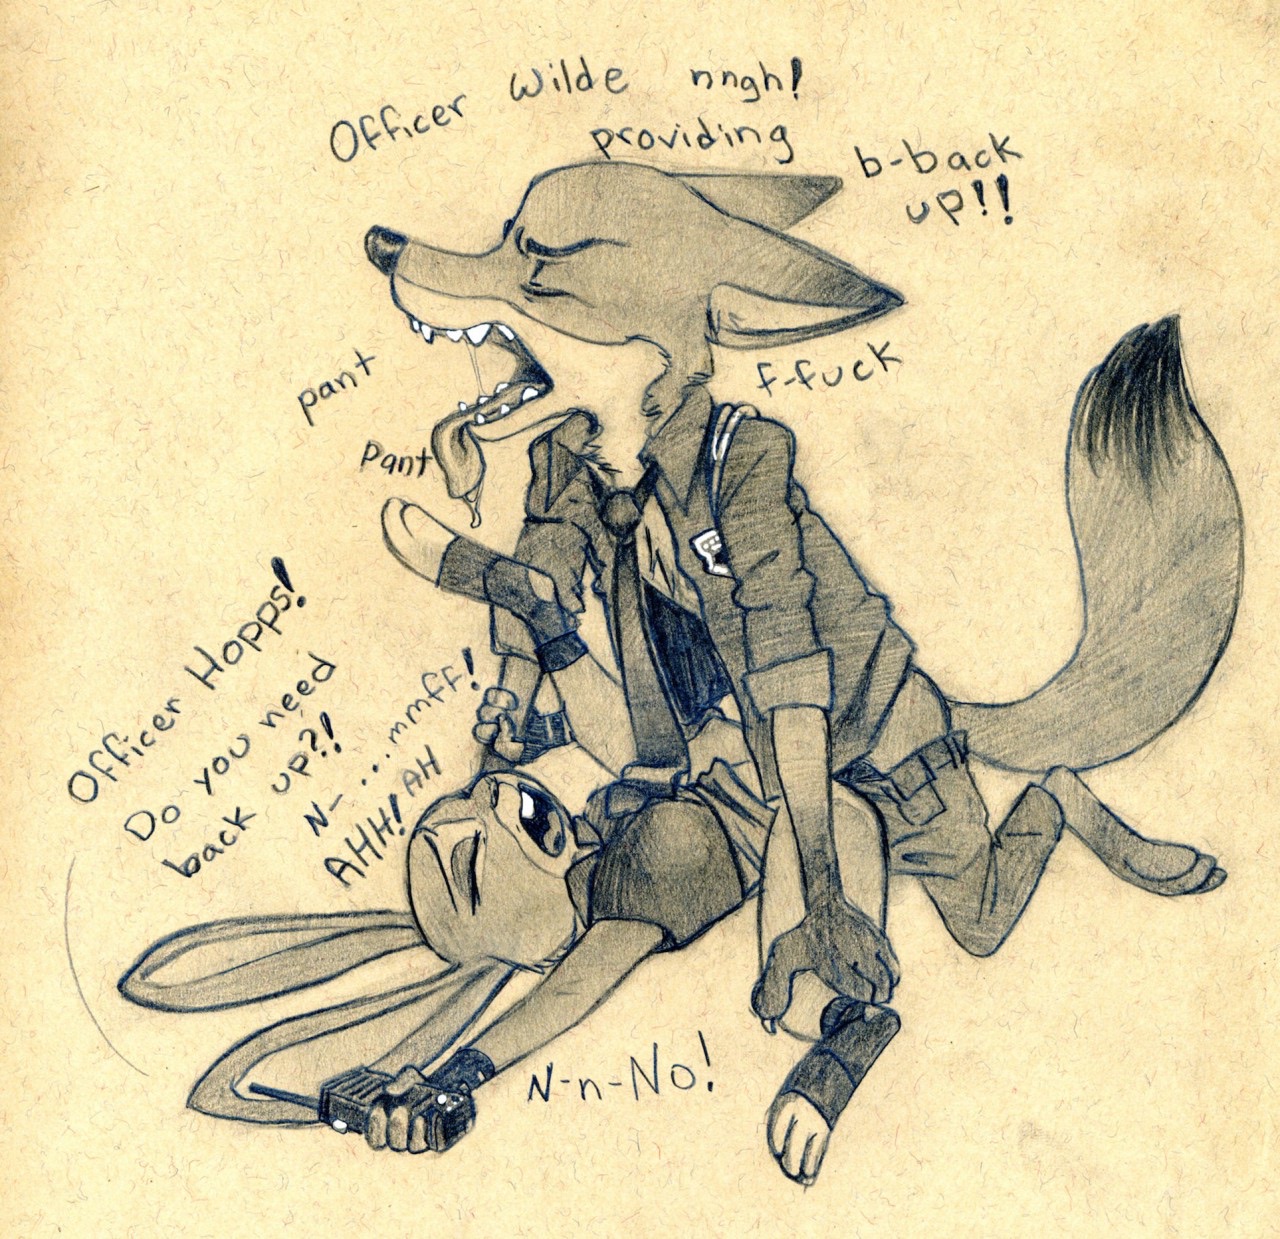 Officer Wilde nngh!
providing
b-back
up!!
f-fuck
pant
pant
Officer Hopps!
Do you need
back up?!
N- ...mmff!
AHH! AH
N-n-No!